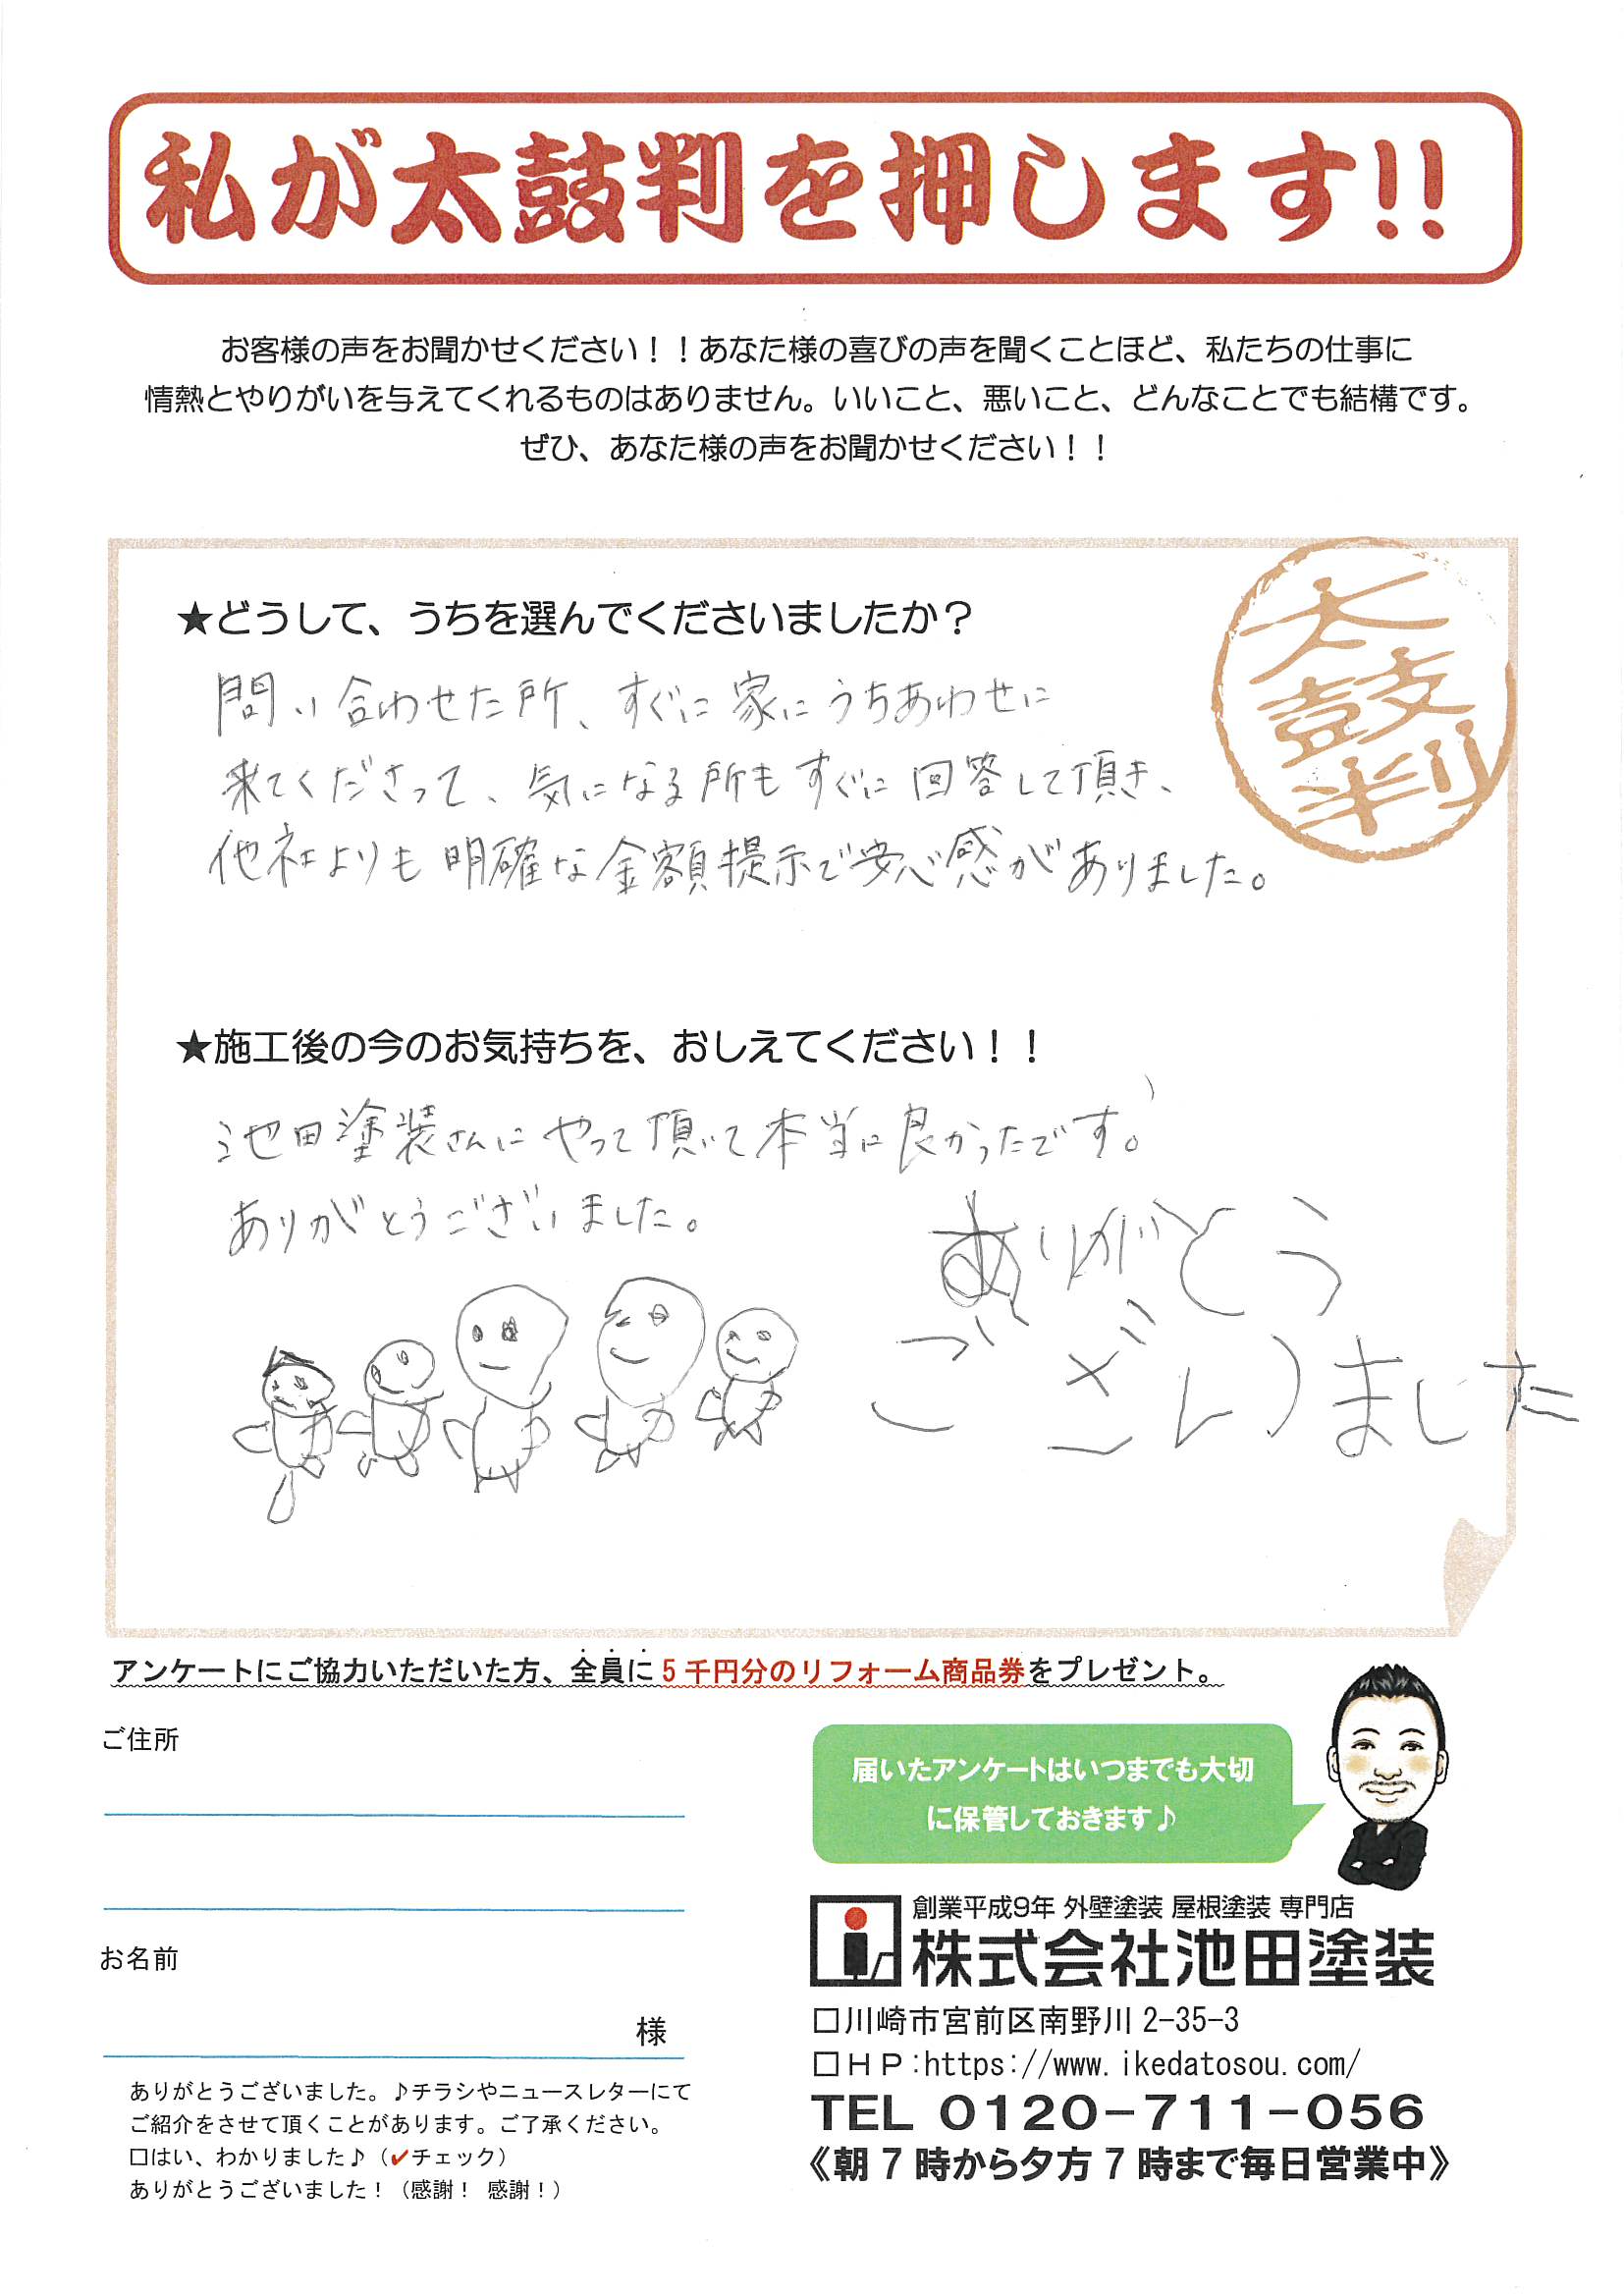 私が太鼓判を押します!!
お客様の声をお聞かせください！！あなた様の喜びの声を聞くことほど、私たちの仕事に
情熱とやりがいを与えてくれるものはありません。いいこと、悪いこと、どんなことでも結構です。
ぜひ、あなた様の声をお聞かせください！！
太
鼓
判
★どうして、うちを選んでくださいましたか？
問い合わせた所、すぐに家にうちあわせに
来てくださって、気になる所もすぐに回答して頂き、
他社よりも明確な金額提示で安心感がありました。
★施工後の今のお気持ちを、おしえてください！！
池田塗装さんにやって頂いて本当に良かったです。
ありがとうございました。
ありがとう
ございました
アンケートにご協力いただいた方、全員に5千円分のリフォーム商品券をプレゼント。
ご住所
お名前
様
ありがとうございました。♪チラシやニュースレターにて
ご紹介をさせて頂くことがあります。ご了承ください。
□はい、わかりました♪（✔チェック）
ありがとうございました！（感謝！ 感謝！）
届いたアンケートはいつまでも大切
に保管しておきます♪
創業平成9年 外壁塗装 屋根塗装 専門店
株式会社池田塗装
□川崎市宮前区南野川2-35-3
□ＨＰ:https://www.ikedatosou.com/
TEL 0120-711-056
《朝7時から夕方7時まで毎日営業中》